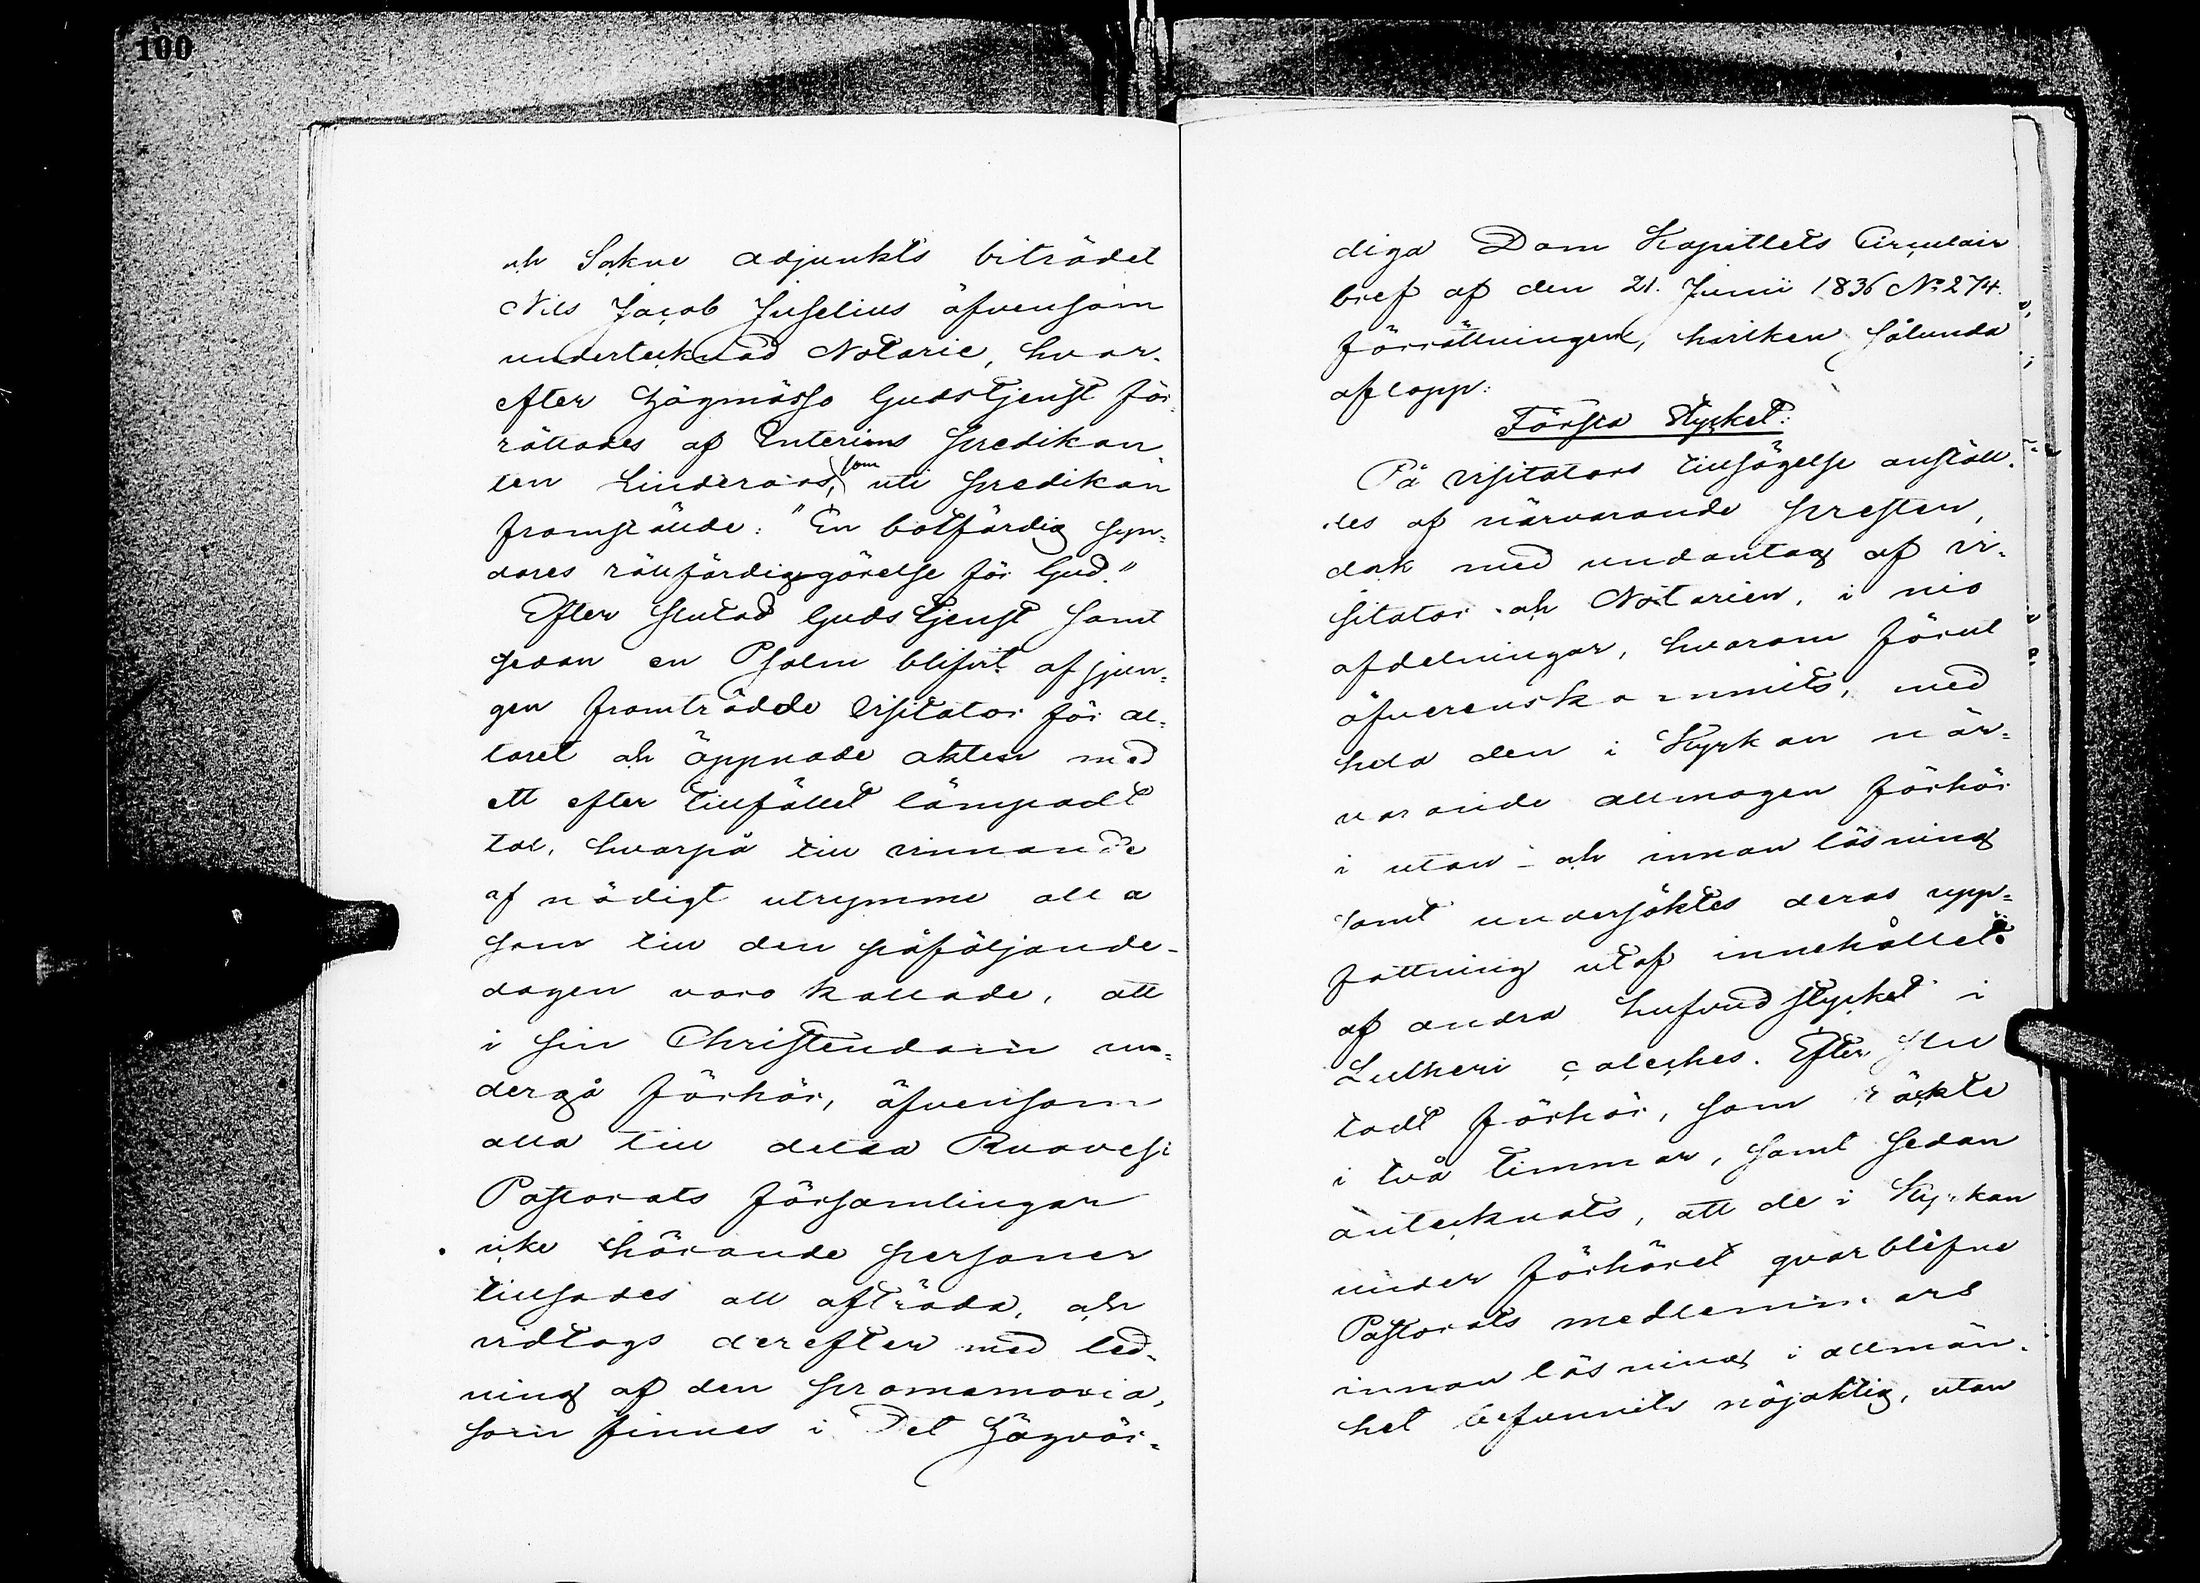 100
och Sokne adjunkts biträdet
Nils Jacob Juselius äfvensom
undertecknad Notarie, hvar-
efter Högmässo Gudstjenst för-
rättades af Interims Predikan-
ten Linderoos, som uti Predikan
framstälde: "En botfärdig syn-
dares rättfärdiggörelse för Gud."
Efter slutad Gudstjenst samt
sedan en Psalm blifvit afsjun-
gen framträdde Visitator för al-
taret och öppnade akten med
ett efter tillfället lämpadt
tal, hvarpå till vinnande
af nödigt utrymme alla
som till den påföljande
dagen voro kallade, att
i sin Christendom un-
dergå förhör, äfvensom
alla till detta Ruovesi
Pastorats församlingar
icke hörande personer
tillsades att afträda, och
vidtogs derefter med led-
ning af den promemoria,
som finnes i Det Högvör-
diga Dom Kapitlets Circulair
bref af den 21. Junii 1836 No 274.
förrättningen, hvilken sålunda
aflopp:
Första Stycket:
På Visitators tillsägelse anställ-
des af närvarande Presten,
dock med undantag af Vi-
sitator och Notarien, i nio
afdelningar, hvarom förut
öfverenskommits, med
hela den i Kyrkan när-
varande allmogen förhör
i utan- och innan läsning
samt undersöktes deras upp-
fattning utaf innehållet
af andra hufvudstycket i
Lutheri Cateches. Efter slu
tadt förhör, som räckte
i två timmar, samt sedan
antecknats, att de i Kyrkan
under förhöret qvarblifne
Pastorats medlemmars
innan läsning i allmän-
het befunnits nöjaktig, utan